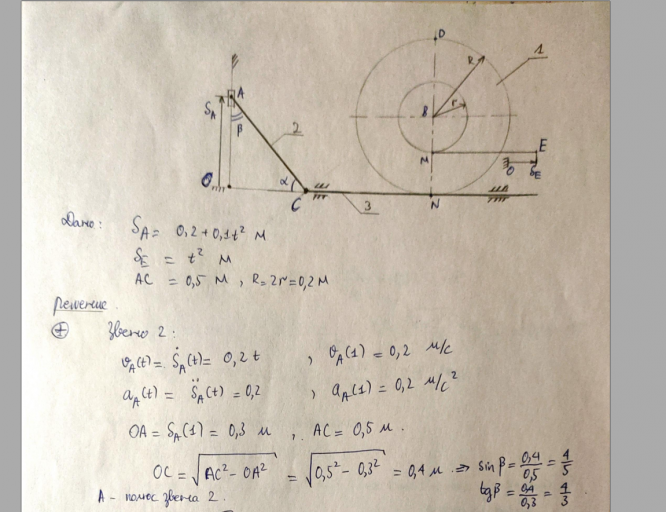 D
R
1
A
S_A
β
2
B
r
M
E
O
S_E
O
α
C
3
N
Дано: S_A = 0,2 + 0,1t² м
S_E = t² м
AC = 0,5 м, R = 2r = 0,2 м
Решение.
Звено 2:
υ_A(t) = Ṡ_A(t) = 0,2 t , υ_A(1) = 0,2 м/с
a_A(t) = S̈_A(t) = 0,2 , a_A(1) = 0,2 м/с²
OA = S_A(1) = 0,3 м , AC = 0,5 м.
OC = √(AC² − OA²) = √(0,5² − 0,3²) = 0,4 м. ⇒ sin β = 0,4/0,5 = 4/5
A – полюс звена 2. tg β = 0,4/0,3 = 4/3